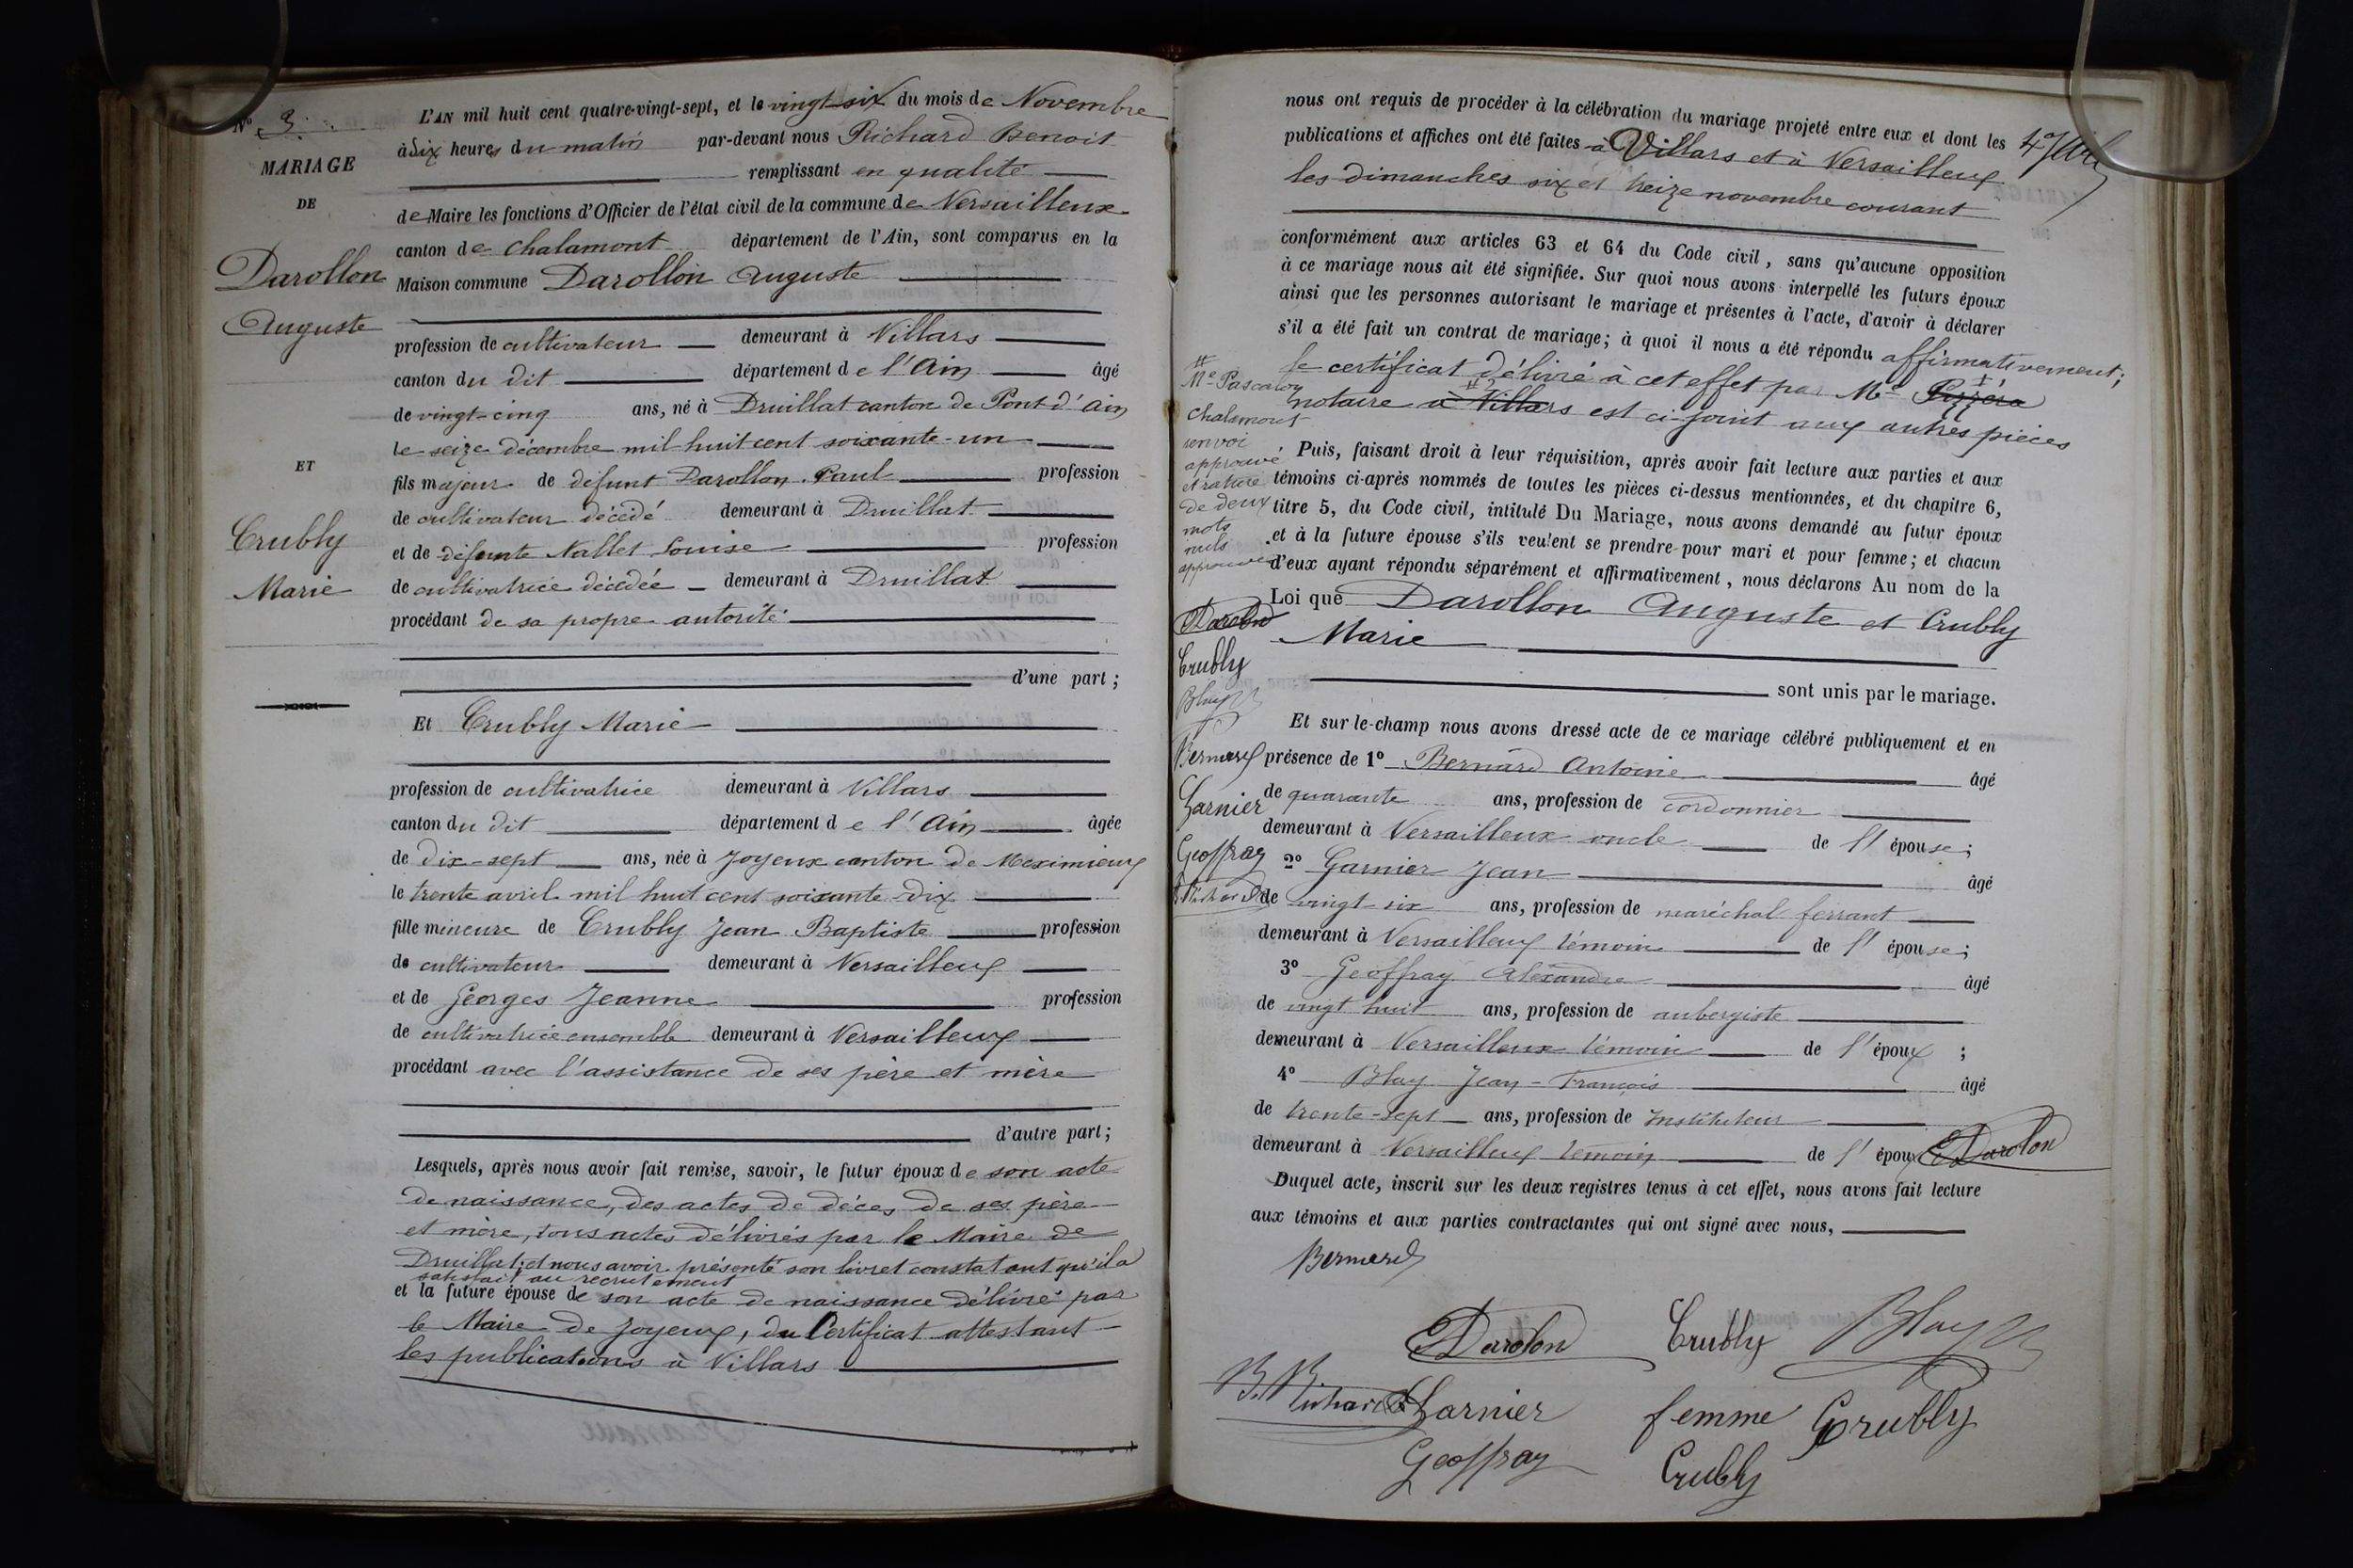 N° 3.
MARIAGE
DE
Darollon
Auguste
ET
Crubly
Marie
L'AN mil huit cent quatre-vingt-sept, et le vingt-six du mois de Novembre
à dix heures du matin par-devant nous Richard Benoit
remplissant en qualité
de Maire les fonctions d'Officier de l'état civil de la commune de Versailleux
canton de Chalamont département de l'Ain, sont comparus en la
Maison commune Darollon Auguste
profession de cultivateur demeurant à Villars
canton du dit département de l'Ain âgé
de vingt-cinq ans, né à Druillat canton de Pont-d'Ain
le seize décembre mil huit cent soixante-un
fils majeur de défunt Darollon Paul profession
de cultivateur décédé demeurant à Druillat
et de défunte Nallet Louise profession
de cultivatrice décédée demeurant à Druillat
procédant de sa propre autorité
d'une part ;
Et Crubly Marie
profession de cultivatrice demeurant à Villars
canton du dit département de l'Ain âgée
de dix-sept ans, née à Joyeux canton de Meximieux
le trente avril mil huit cent soixante-dix
fille mineure de Crubly Jean Baptiste profession
de cultivateur demeurant à Versailleux
et de Georges Jeanne profession
de cultivatrice ensemble demeurant à Versailleux
procédant avec l'assistance de ses père et mère
d'autre part ;
Lesquels, après nous avoir fait remise, savoir, le futur époux de son acte
de naissance, des actes de décès de ses père
et mère, tous actes délivrés par le Maire de
Druillat, et nous avoir présenté son livret constatant qu'il a
satisfait au recrutement
et la future épouse de son acte de naissance délivré par
le Maire de Joyeux, du Certificat attestant
les publications à Villars
nous ont requis de procéder à la célébration du mariage projeté entre eux et dont les
publications et affiches ont été faites à Villars et à Versailleux
les dimanches six et treize novembre courant
conformément aux articles 63 et 64 du Code civil, sans qu'aucune opposition
à ce mariage nous ait été signifiée. Sur quoi nous avons interpellé les futurs époux
ainsi que les personnes autorisant le mariage et présentes à l'acte, d'avoir à déclarer
s'il a été fait un contrat de mariage ; à quoi il nous a été répondu affirmativement ;
le certificat délivré à cet effet par Me
notaire à Villars est ci-joint aux autres pièces
Puis, faisant droit à leur réquisition, après avoir fait lecture aux parties et aux
témoins ci-après nommés de toutes les pièces ci-dessus mentionnées, et du chapitre 6,
titre 5, du Code civil, intitulé Du Mariage, nous avons demandé au futur époux
et à la future épouse s'ils veulent se prendre pour mari et pour femme ; et chacun
d'eux ayant répondu séparément et affirmativement, nous déclarons Au nom de la
Loi que Darollon Auguste et Crubly
Marie
sont unis par le mariage.
Et sur le-champ nous avons dressé acte de ce mariage célébré publiquement et en
présence de 1° Bernard Antoine âgé
de quarante ans, profession de cordonnier
demeurant à Versailleux oncle de l'épouse ;
2° Garnier Jean âgé
de vingt six ans, profession de maréchal ferrant
demeurant à Versailleux témoin de l'épouse ;
3° Geoffray Alexandre âgé
de vingt huit ans, profession de aubergiste
demeurant à Versailleux témoin de l'époux ;
4° Blay Jean-François âgé
de trente-sept ans, profession de Instituteur
demeurant à Versailleux témoin de l'époux
Darolon
Duquel acte, inscrit sur les deux registres tenus à cet effet, nous avons fait lecture
aux témoins et aux parties contractantes qui ont signé avec nous,
Bernard
Darolon Crubly Blay
B. Richard Garnier femme Crubly
Geoffray Crubly
#
Me Pascalon
Chalamont
renvoi
approuvé
et rature
de deux
mots
nuls
approuvée
Darolon
Crubly
Blay
Bernard
Garnier
Geoffray
B. Richard